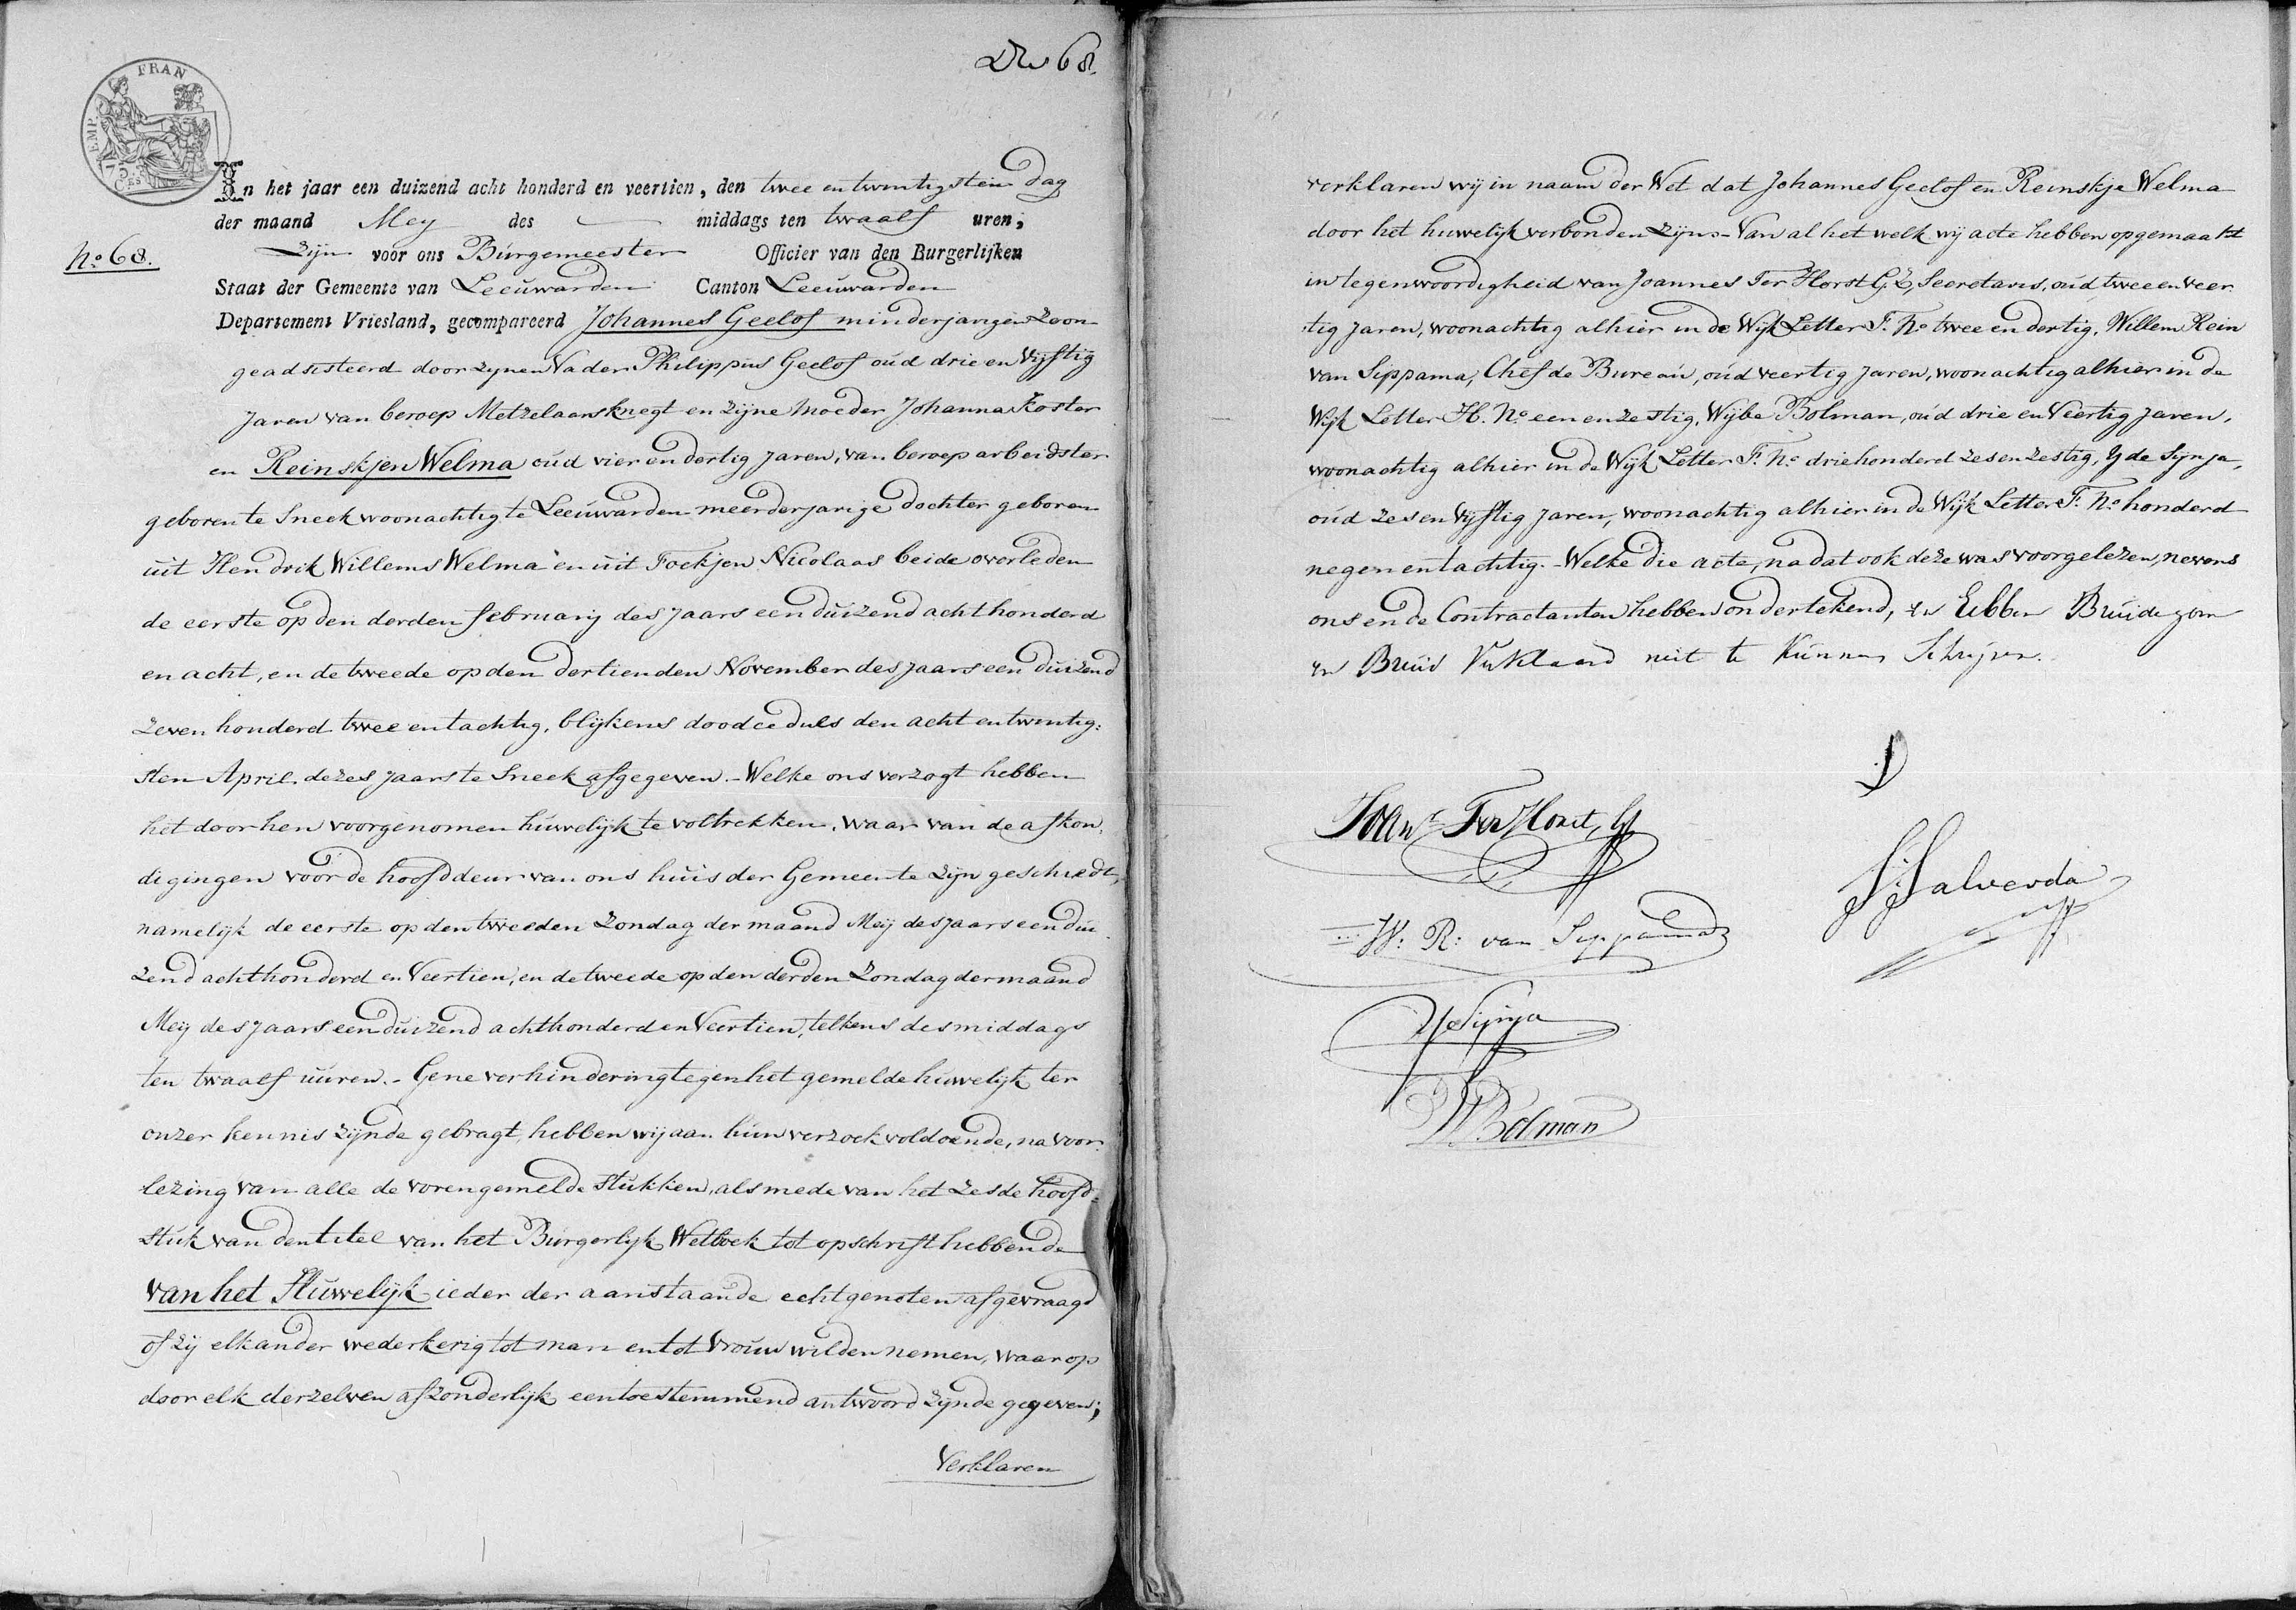 No 68.
EMP. FRAN
In het jaar een duizend acht honderd en veertien, den twee en twintigsten dag
der maand Mey des middags ten twaalf uren,
No. 68.
Zijn voor ons Burgemeester Officier van den Burgerlijken
Staat der Gemeente van Leeuwarden Canton Leeuwarden
Departement Vriesland, gecompareerd Johannes Geelof minderjarigen Zoon
geadsisteerd door zynen Vader Philippus Geelof oud drie en Vijftig
Jaren van beroep Metzelaarsknegt en zijne moeder Johanna Koster
en Reinskjen Welma oud vier en dertig jaren, van beroep arbeidster
geboren te Sneek woonachtig te Leeuwarden meerderjarige dochter geboren
uit Hendrik Willems Welma en uit Fockjen Nicolaas beide overleden
de eerste op den derden february des jaars een duizend acht honderd
en acht, en de tweede op den dertienden November des jaars een duizend
zeven honderd twee en tachtig, blijkens doodceduls den acht en twintig:
sten April dezes jaars te Sneek afgegeven. - Welke ons verzogt hebben
het door hen voorgenomen huwelijk te voltrekken, waar van de afkon,
digingen voor de hoofddeur van ons huis der Gemeente zijn geschiedt,
namelijk de eerste op den tweeden Zondag der maand Meij des jaars een dui
zend achthonderd en Veertien, en de tweede op den derden Zondag der maand
Meij des jaars een duizend achthonderd en Veertien, telkens des middags
ten twaalf uuren. - Gene verhindering tegen het gemelde huwelijk ter
onzer kennis zijnde gebragt, hebben wij aan hun verzoek voldoende, na voor
lezing van alle de vorengemelde stukken, alsmede van het zesde hoofd=
stuk van den titel van het Burgerlijk Wetboek tot opschrift hebbende
van het Huwelijk ieder der aanstaande echtgenoten afgevraagd
of zij elkander wederkerig tot man en tot Vrouw wilden nemen, waar op
door elk derzelven afzonderlijk een toestemmend antwoord zijnde gegeven;
Verklaren
verklaren wij in naam der Wet dat Johannes Geelof en Reinskje Welma
door het huwelijk verbonden zijn. - Van al het welk wij acte hebben opgemaakt
in tegenwoordigheid van Joannes Ter Horst G.Z, Secretaris, oud twee en veer
tig jaren, woonachtig alhier in de Wijk Letter F. No twee en dertig, Willem Rein
van Sippama, Chef de Bureau, oud veertig jaren, woonachtig alhier in de
Wijk Letter H. No. een en zestig, Wijbe Bolman, oud drie en Veertig jaren,
woonachtig alhier in de Wijk Letter F. No. driehonderd zes en zestig, Yde Synja,
oud zes en Vijftig jaren, woonachtig alhier in de Wijk Letter F. No honderd
negen en tachtig. - Welke die acte, nadat ook deze was voorgelezen, nevens
ons en de Contractanten hebben ondertekend, Bruidegom
en Bruid Verklaard niet te Kunnen Schrijven.
Joans Ter Horst, Gz
W: R: van Sippama
Y Synja
W Bolman
Salverda